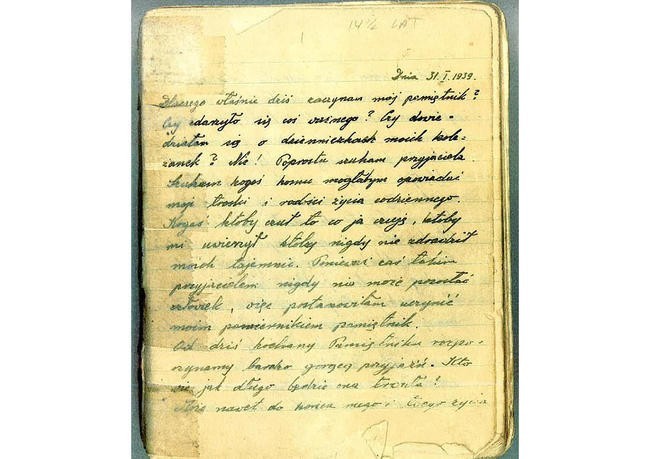 14½ LAT
Dnia 31.I.1939.
Dlaczego właśnie dziś zaczynam mój pamiętnik?
Czy zdarzyło się coś ważnego? Czy dowie-
działam się o dzienniczkach moich kole-
żanek? Nie! Poprostu szukam przyjaciela.
Szukam kogoś komu mogłabym opowiadać
moje troski i radości życia codziennego.
Kogoś ktoby czuł to co ja czuję, ktoby
mi uwierzył ktoby nigdy nie zdradził
moich tajemnic. Ponieważ zaś takim
przyjacielem nigdy nie może pozostać
człowiek, więc postanowiłam uczynić
moim powiernikiem pamiętnik.
Od dziś kochany Pamiętniku rozpo-
czynamy bardzo gorącą przyjaźń. Kto
wie jak długo będzie ona trwała?
Może nawet do końca mego i Twego życia